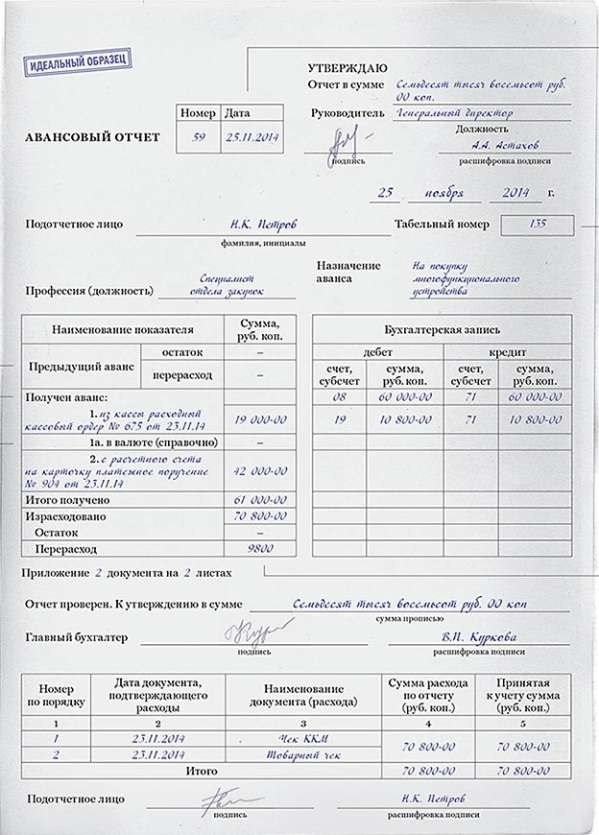 ИДЕАЛЬНЫЙ ОБРАЗЕЦ
УТВЕРЖДАЮ
Отчет в сумме Семьдесят тысяч восемьсот руб.
00 коп.
Номер Дата
Руководитель Генеральный директор
Должность
АВАНСОВЫЙ ОТЧЕТ 59 25.11.2014
А.А. Астахов
подпись расшифровка подписи
25 ноября 2014 г.
Подотчетное лицо Н.К. Петров Табельный номер 135
фамилия, инициалы
Назначение аванса На покупку многофункционального устройства
Профессия (должность) Специалист отдела закупок
Наименование показателя Сумма, руб. коп.
Предыдущий аванс остаток –
перерасход –
Получен аванс:
1. из кассы расходный
кассовый ордер № 675 от 23.11.14 19 000-00
1а. в валюте (справочно) –
2. с расчетного счета
на карточку платежное поручение
№ 904 от 23.11.14 42 000-00
Итого получено 61 000-00
Израсходовано 70 800-00
Остаток –
Перерасход 9800
Бухгалтерская запись
дебет кредит
счет, субсчет сумма, руб. коп. счет, субсчет сумма, руб. коп.
08 60 000-00 71 60 000-00
19 10 800-00 71 10 800-00
Приложение 2 документа на 2 листах
Отчет проверен. К утверждению в сумме Семьдесят тысяч восемьсот руб. 00 коп
сумма прописью
Главный бухгалтер В.П. Куркова
подпись расшифровка подписи
Номер по порядку Дата документа, подтверждающего расходы Наименование документа (расхода) Сумма расхода по отчету (руб. коп.) Принятая к учету сумма (руб. коп.)
1 2 3 4 5
1 23.11.2014 Чек ККМ 70 800-00 70 800-00
2 23.11.2014 Товарный чек
Итого 70 800-00 70 800-00
Подотчетное лицо Н.К. Петров
подпись расшифровка подписи